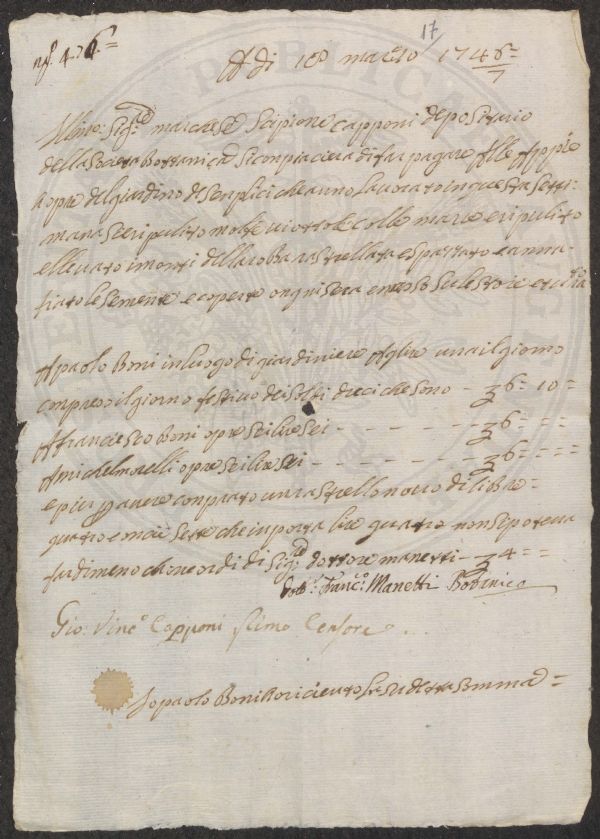 17
nº. 4.76.=
A di 18 marzo 1746=/7
Illmo: Sig.re marchese Scipione Capponi depositario
della Societa Bottanica Si conpiacera di far pagare Alle Appie
hopre del giardino de Senplici che anno lavorato in questa Setti=
mana Sce ripulito molte viottole colle marre e ripulito
e llevato i monti della robba rastrellata e spazzato e anna=
fiato le Semente e coperto ongni sera
A paolo Boni in luogo di giardiniere A lire una il giorno
conpreso il giorno festivo de Soldi dieci che sono - 6= 10 =
A franciesco Boni opre Sei lire Sei - - - - - - 6= = =
A michel morelli opre Sei lire Sei - - - - - - 6= = =
e piu p avere conprato un rastrello novo di libre =
quatro e oncie Sette che inporta lire quatro non Si poteva
far di meno chon ordi di Sig.re dottore manetti - 4 = =
Dott.r Franc.o Manetti
Gio: Vinc.o Capponi primo Censore
Io paolo Boni o ricieuto la Su detta Somma =